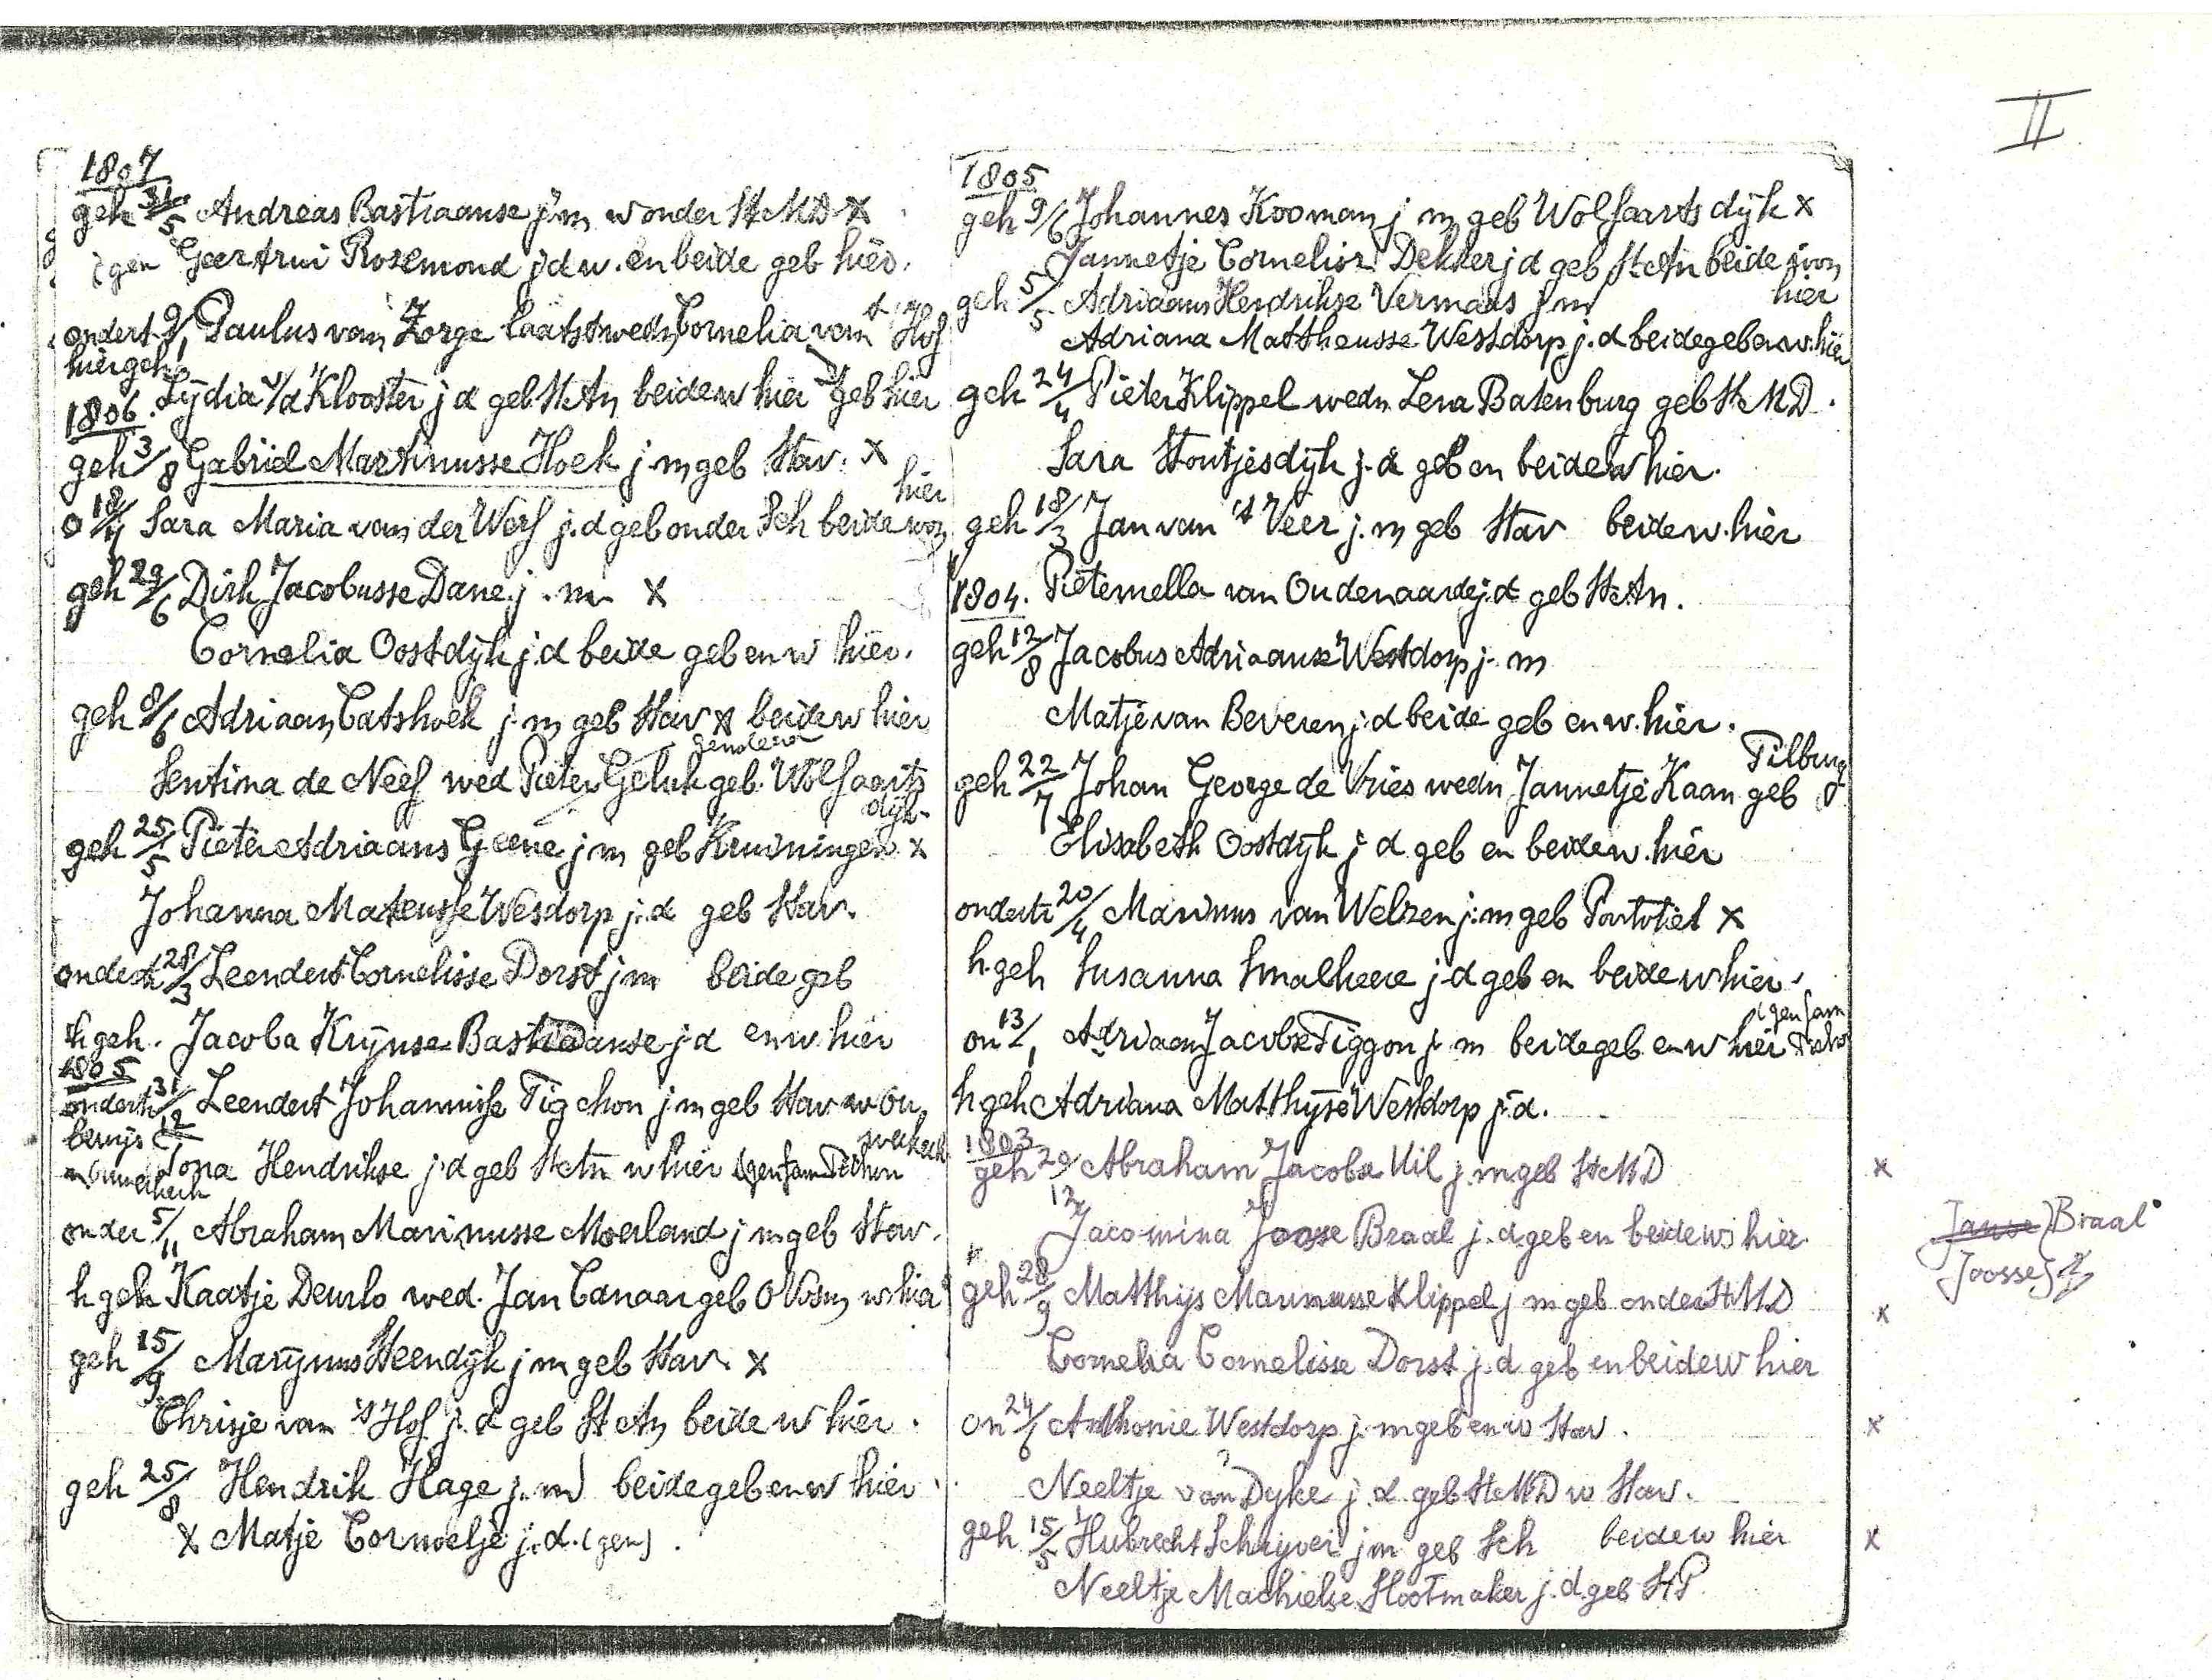 II
1807
geh 31/5 Andreas Bastiaanse j.m w onder St MD x
(gen Geertrui Rosemond j.d w. en beide geb hier.
ondert 9/1 Paulus van Zorge laatst wedn Cornelia van 't Hof
hier geh
Lydia v/d Klooster j d geb St An beide w hier geb hier
1806.
geh 3/8 Gabriel Martinusse Hoek j.m geb Stav. x
hier
o 18/7 Sara Maria van der Werf j.d geb onder Sch beide won
geh 29/6 Dirk Jacobusse Dane j.m x
Cornelia Oostdijk j.d beide geb en w hier.
geh 8/6 Adriaan Catshoek j m geb Stav x beide w hier
Sentina de Neef wed Pieter Geluk geb. Wolfaarts
dijk.
geh 25/5 Pieter Adriaans Geene j m geb Kruiningen x
Johanna Mateusse Wesdorp j.d geb Stav.
ondert 28/3 Leendert Cornelisse Dorst j m beide geb
h geh. Jacoba Krijnse Bastiaanse j d en w hier
1805
ondert 31/12 Leendert Johannisse Tigchon j m geb Stav w Ou
Tona Hendrikse j.d geb St An w hier
onder 5/11 Abraham Marinusse Moerland j m geb Stav.
h geh Kaatje Deurlo wed. Jan Canaar geb O Vosm w hier
geh 15/9 Marijnus Steendijk j m geb Stav. x
Chrisje van 't Hof j.d geb St An beide w hier.
geh 25/8 Hendrik Hage j.m beide geb en w hier
x Matje Cornoelje j.d. (gen).
1805
geh 9/6 Johannes Kooman j m geb Wolfaarts dijk x
Jannetje Cornelisr Dekker j d geb St An beide won
hier
geh 5/5 Adriaans Hendrikse Vermaas j m
Adriana Mattheusse Westdorp j.d beide geb en w. hier
geh 24/4 Pieter Klippel wedn Lena Batenburg geb St MD.
Sara Stoutjesdijk j.d geb en beide w hier.
geh 18/3 Jan van 't Veer j.m geb Stav beide w. hier
1804. Pieternella van Oudenaarde j.d geb St An.
geh 12/8 Jacobus Adriaanse Westdorp j.m
Matje van Beveren j.d beide geb en w. hier.
Tilburg
geh 22/7 Johan George de Vries wedn Jannetje Kaan geb
Elisabeth Oostdijk j d geb en beide w. hier
ondertr 20/4 Marinus van Welzen j.m geb Portvliet x
h.geh Susanna Smalheere j.d geb en beide w hier.
on 13/1 Adriaan Jacobse Tiggon j.m beide geb. en w hier
h geh Adriana Matthijse Westdorp j.d.
1803
geh 29/12 Abraham Jacobse Uil j.m geb St MD x
Jacomina Joosse Braal j.d. geb en beide w hier.
Janse) Braal
Joosse)
geh 28/9 Matthijs Marinusse Klippel j m geb onder St MD x
Cornelia Cornelisse Dorst j.d geb en beide w hier
on 24/6 Anthonie Westdorp j.m geb en w Stav. x
Neeltje van Dyke j.d. geb St MD w Stav.
geh 15/5 Hubrecht Schrijver j m geb Sch beide w hier x
Neeltje Machielse Slootmaker j.d. geb St P.